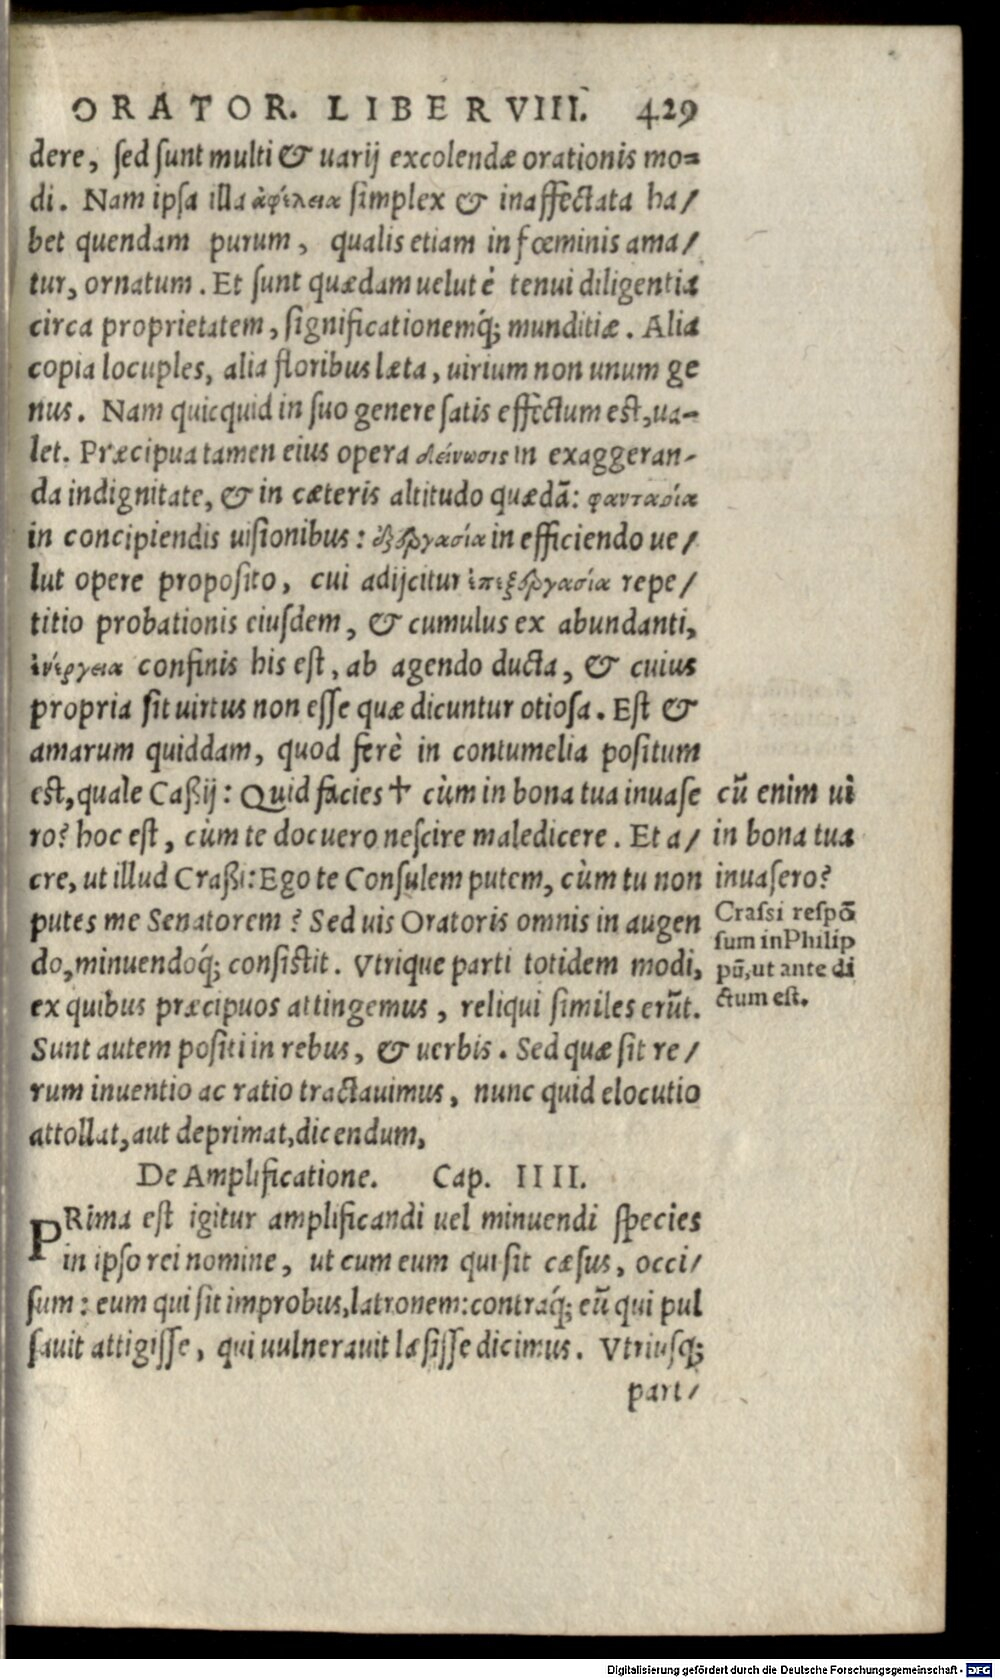 ORATOR. LIBER VIII. 429
dere, sed sunt multi & uarij excolendæ orationis mo=
di. Nam ipsa illa ἀφέλεια simplex & inaffectata ha/
bet quendam purum, qualis etiam in fœminis ama/
tur, ornatum. Et sunt quædam uelut è tenui diligentia
circa proprietatem, significationemq́; munditiæ. Alia
copia locuples, alia floribus læta, uirium non unum ge
nus. Nam quicquid in suo genere satis effectum est, ua-
let. Præcipua tamen eius opera δείνωσις in exaggeran-
da indignitate, & in cæteris altitudo quædã: φαντασία
in concipiendis uisionibus: ἐξεργασία in efficiendo ue/
lut opere proposito, cui adijcitur ἐπεξεργασία repe/
titio probationis eiusdem, & cumulus ex abundanti,
ἐνέργεια confinis his est, ab agendo ducta, & cuius
propria sit uirtus non esse quæ dicuntur otiosa. Est &
amarum quiddam, quod ferè in contumelia positum
est, quale Caßij: Quid facies ✝ cùm in bona tua inuase
ro? hoc est, cùm te docuero nescire maledicere. Et a/
cre, ut illud Craßi: Ego te Consulem putem, cùm tu non
putes me Senatorem? Sed uis Oratoris omnis in augen
do, minuendoq́; consistit. Vtrique parti totidem modi,
ex quibus præcipuos attingemus, reliqui similes erũt.
Sunt autem positi in rebus, & uerbis. Sed quæ sit re/
rum inuentio ac ratio tractauimus, nunc quid elocutio
attollat, aut deprimat, dicendum,
cũ enim ui
in bona tua
inuasero?
Crassi respõ
sum in Philip
pũ, ut ante di
ctum est.
De Amplificatione. Cap. IIII.
PRima est igitur amplificandi uel minuendi species
in ipso rei nomine, ut cum eum qui sit cæsus, occi/
sum: eum qui sit improbus, latronem: contraq́; eũ qui pul
sauit attigisse, qui uulnerauit læsisse dicimus. Vtriusq;
part/
Digitalisierung gefördert durch die Deutsche Forschungsgemeinschaft - DFG